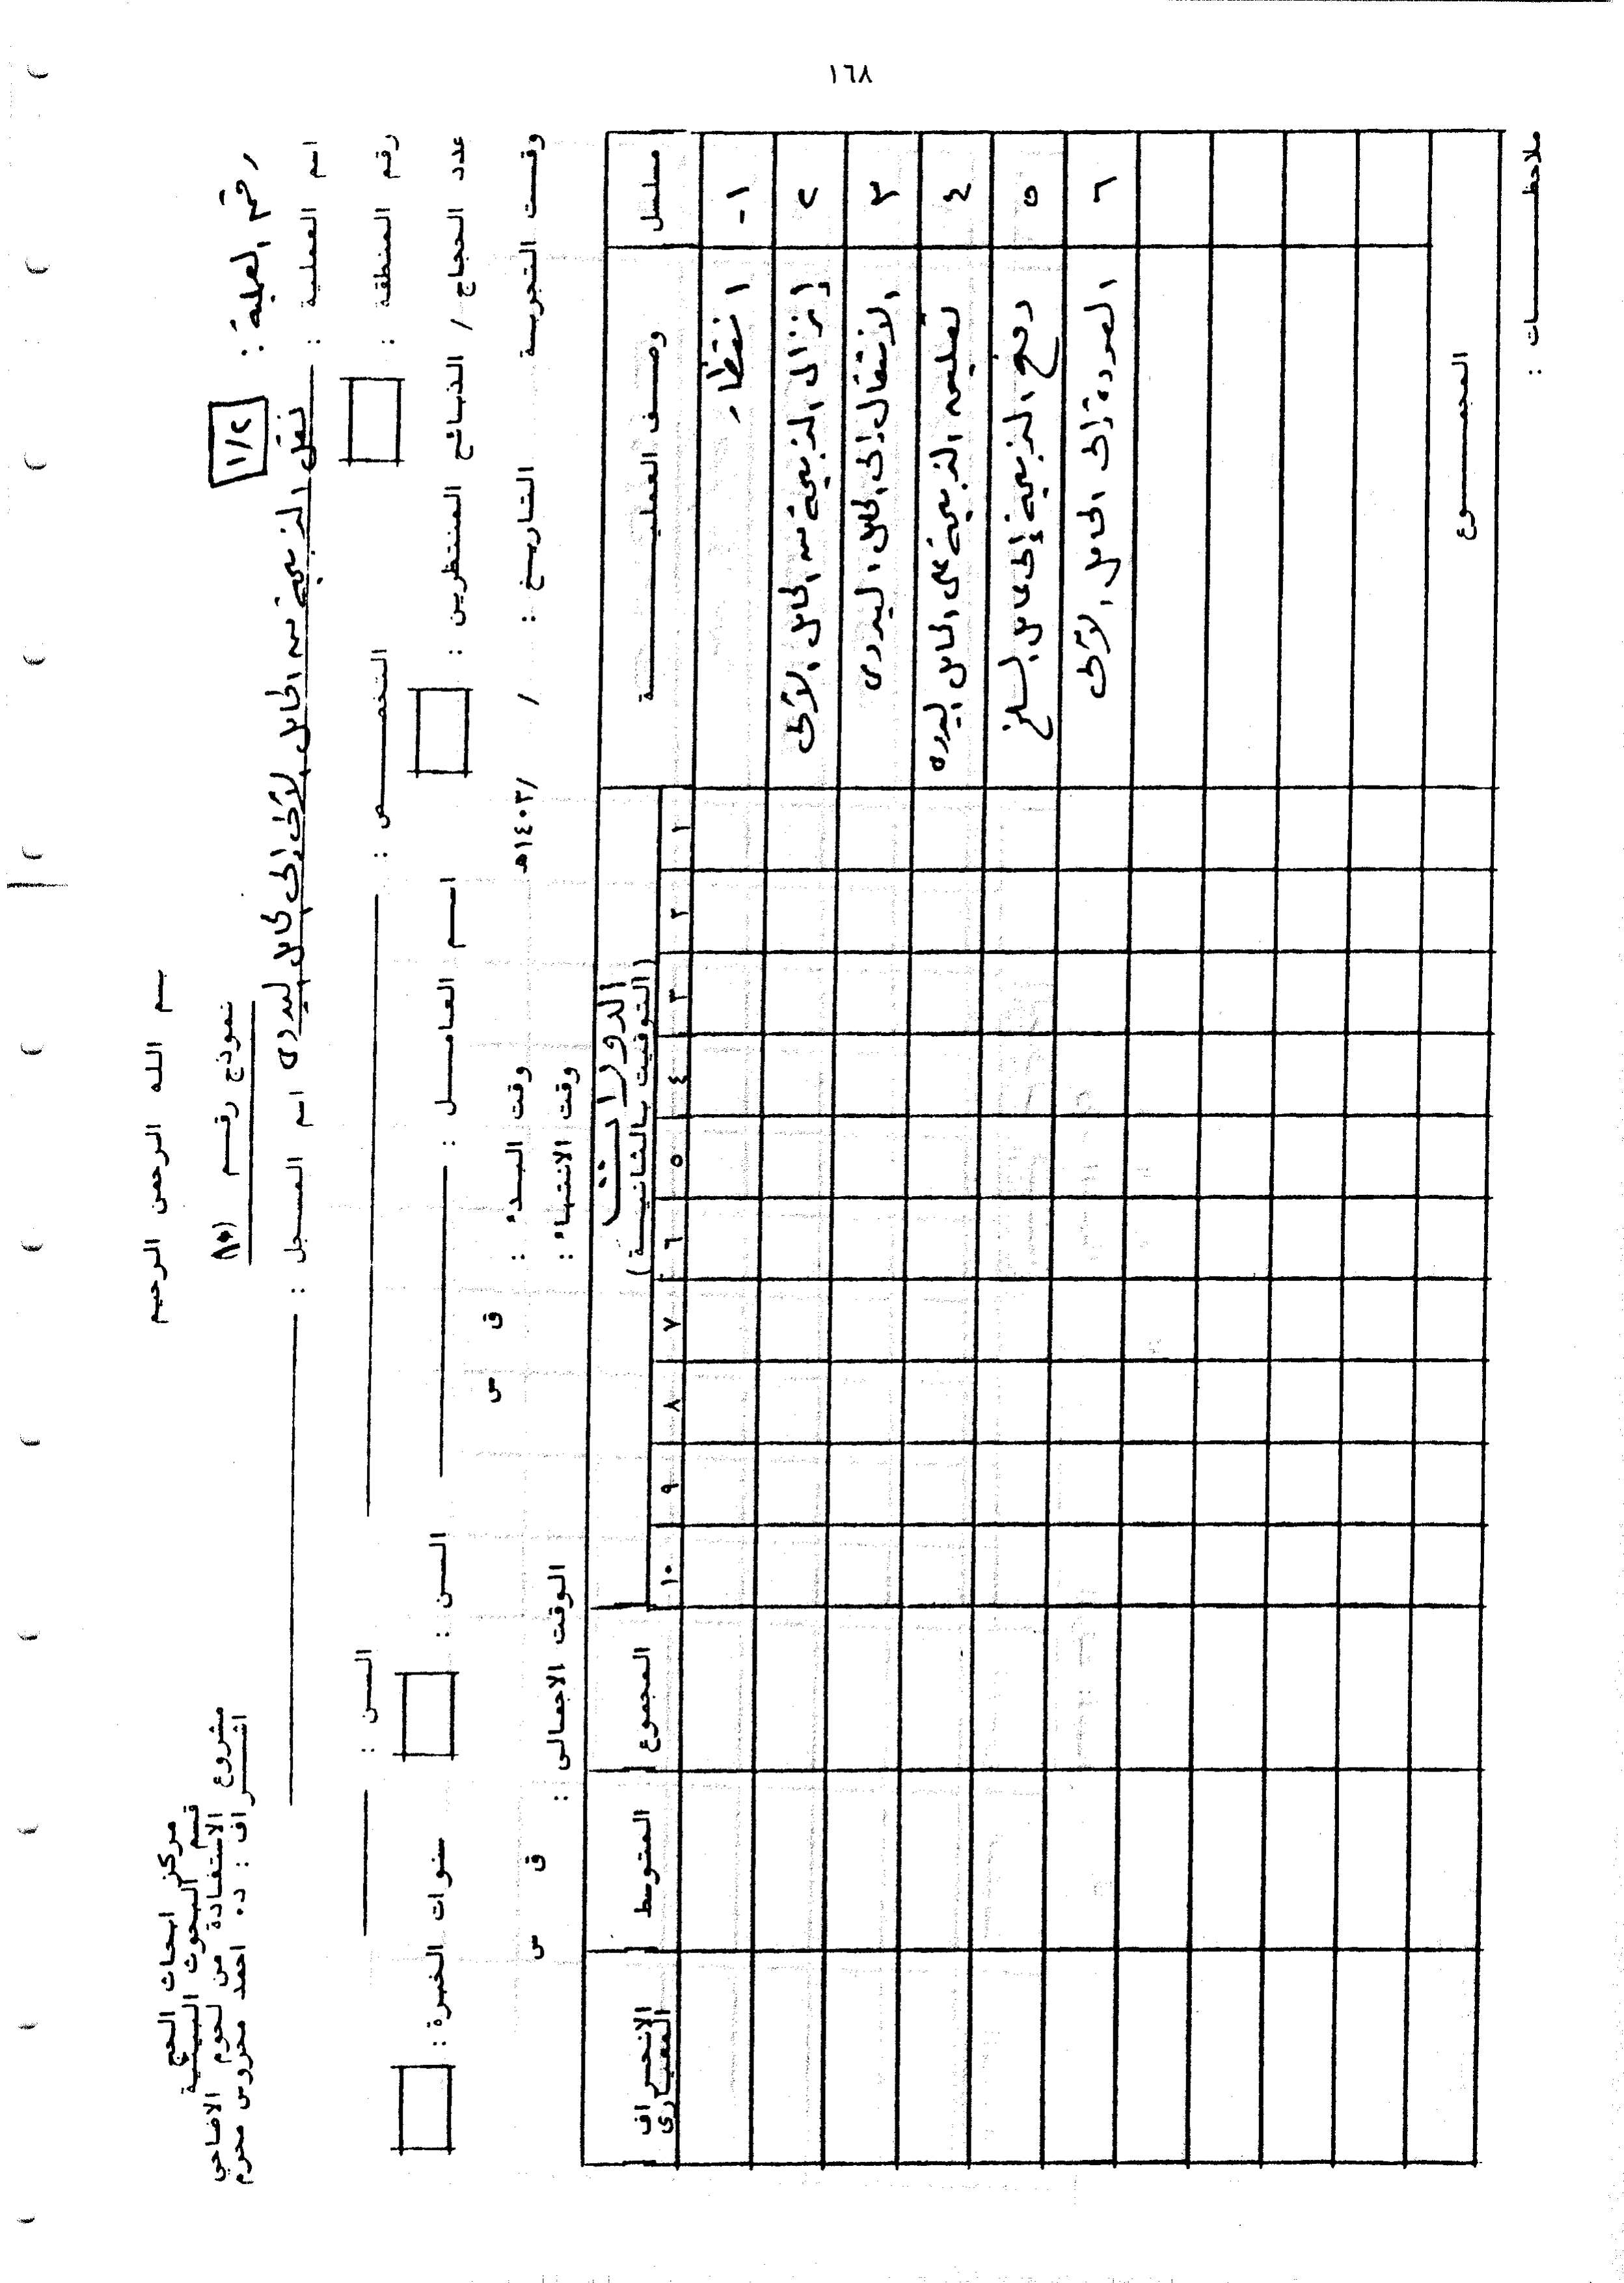 ١٦٨
بسم الله الرحمن الرحيم
مركز ابحاث الحج
قسم البحوث البيئية
مشروع الاستفادة من لحوم الاضاحي
اشراف : د. احمد محروس محرم
نموذج رقم (١٠)
رقم العملية : ١/٢
اسم العملية : نقل الذبيحة من الحامل الآلى إلى الحامل اليدوى
اسم المسجل :
رقم المنطقة :
التخصص :
السن :
عدد الحجاج / الذبائح المنتظرين :
اسم العامل :
السن :
سنوات الخبرة :
وقت التجربة
التاريخ : / / ١٤٠٣هـ
وقت البدء : ق س
وقت الانتهاء :
الوقت الاجمالى : ق س
مسلسل وصف العملية الدورات (التوقيت بالثانية) المجموع المتوسط الانحراف المعيارى
١ ٢ ٣ ٤ ٥ ٦ ٧ ٨ ٩ ١٠
١- انتظار
٢ إنزال الذبيحة من الحامل الآلى
٣ الانتقال إلى الحامل اليدوى
٤ تعليق الذبيحة على الحامل اليدوى
٥ دفع الذبيحة إلى عامل السلخ
٦ العودة إلى الحامل الآلى
المجموع
ملاحظات :